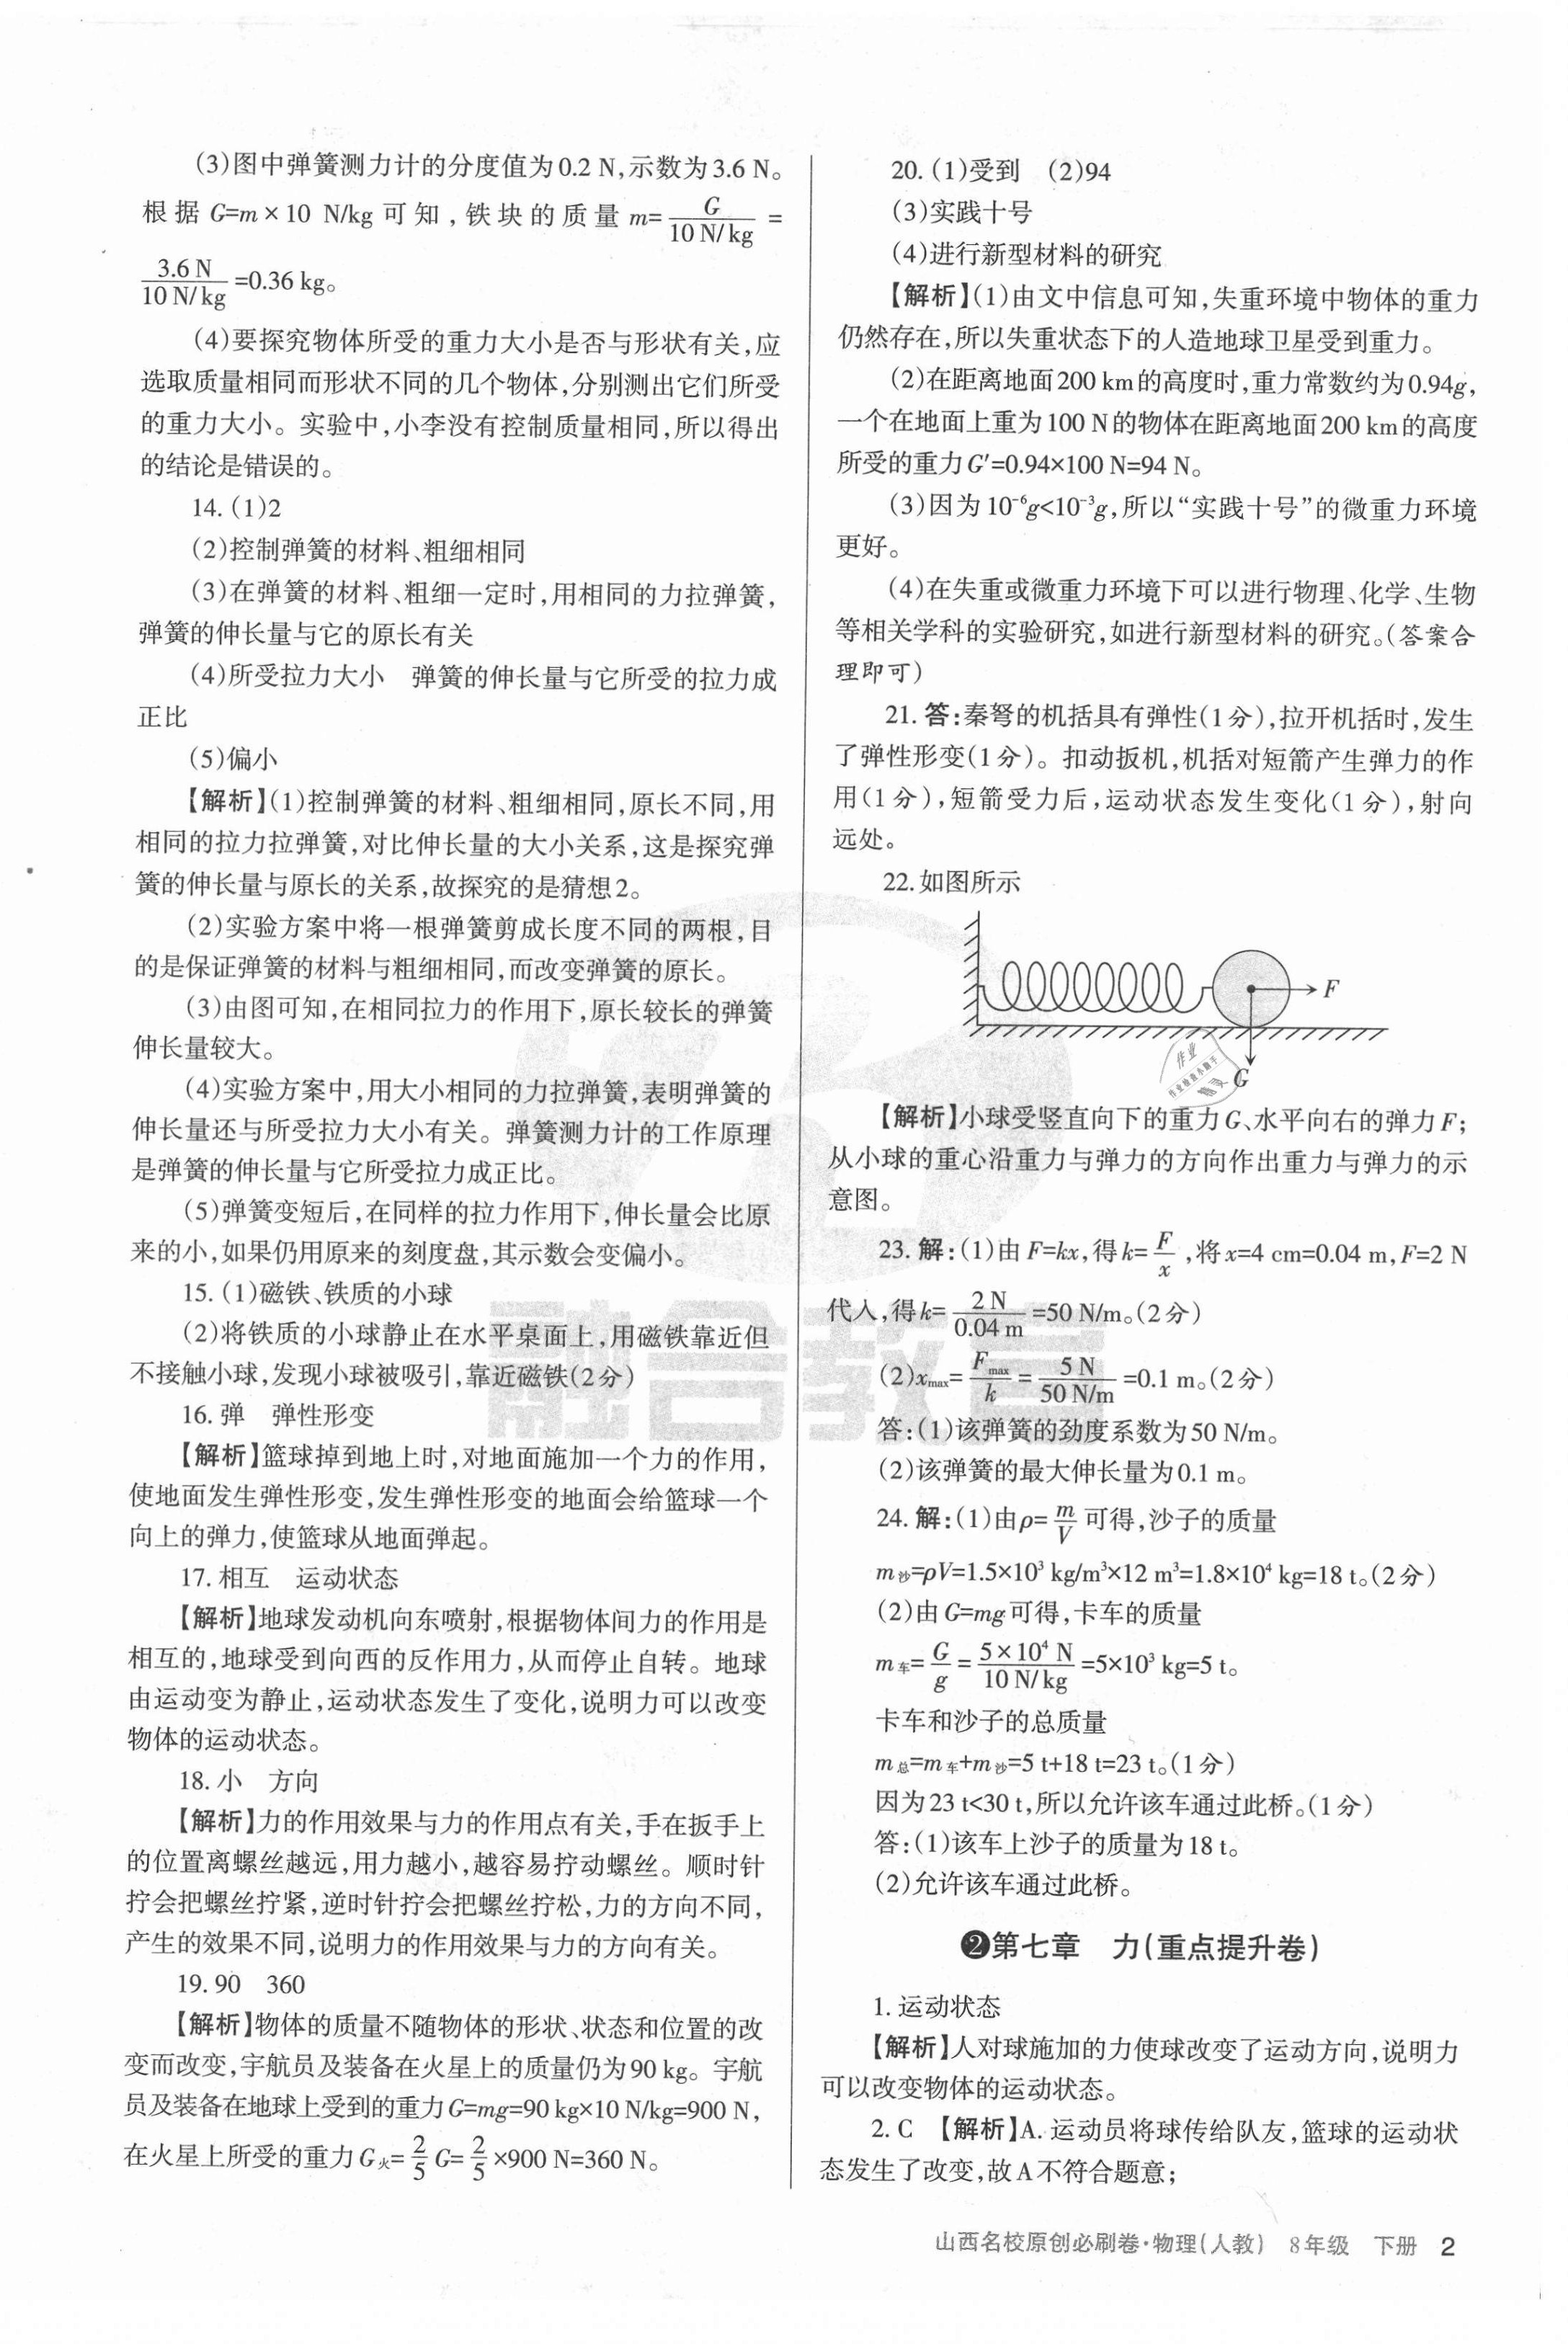 (3)图中弹簧测力计的分度值为0.2 N,示数为3.6 N。
根据 G=m×10 N/kg 可知,铁块的质量 m=G/(10 N/kg)=
3.6 N/(10 N/kg)=0.36 kg。
(4)要探究物体所受的重力大小是否与形状有关,应
选取质量相同而形状不同的几个物体,分别测出它们所受
的重力大小。实验中,小李没有控制质量相同,所以得出
的结论是错误的。
14.(1)2
(2)控制弹簧的材料、粗细相同
(3)在弹簧的材料、粗细一定时,用相同的力拉弹簧,
弹簧的伸长量与它的原长有关
(4)所受拉力大小 弹簧的伸长量与它所受的拉力成
正比
(5)偏小
【解析】(1)控制弹簧的材料、粗细相同,原长不同,用
相同的拉力拉弹簧,对比伸长量的大小关系,这是探究弹
簧的伸长量与原长的关系,故探究的是猜想2。
(2)实验方案中将一根弹簧剪成长度不同的两根,目
的是保证弹簧的材料与粗细相同,而改变弹簧的原长。
(3)由图可知,在相同拉力的作用下,原长较长的弹簧
伸长量较大。
(4)实验方案中,用大小相同的力拉弹簧,表明弹簧的
伸长量还与所受拉力大小有关。弹簧测力计的工作原理
是弹簧的伸长量与它所受拉力成正比。
(5)弹簧变短后,在同样的拉力作用下,伸长量会比原
来的小,如果仍用原来的刻度盘,其示数会变偏小。
15.(1)磁铁、铁质的小球
(2)将铁质的小球静止在水平桌面上,用磁铁靠近但
不接触小球,发现小球被吸引,靠近磁铁(2分)
16.弹 弹性形变
【解析】篮球掉到地上时,对地面施加一个力的作用,
使地面发生弹性形变,发生弹性形变的地面会给篮球一个
向上的弹力,使篮球从地面弹起。
17.相互 运动状态
【解析】地球发动机向东喷射,根据物体间力的作用是
相互的,地球受到向西的反作用力,从而停止自转。地球
由运动变为静止,运动状态发生了变化,说明力可以改变
物体的运动状态。
18.小 方向
【解析】力的作用效果与力的作用点有关,手在扳手上
的位置离螺丝越远,用力越小,越容易拧动螺丝。顺时针
拧会把螺丝拧紧,逆时针拧会把螺丝拧松,力的方向不同,
产生的效果不同,说明力的作用效果与力的方向有关。
19.90 360
【解析】物体的质量不随物体的形状、状态和位置的改
变而改变,宇航员及装备在火星上的质量仍为90 kg。宇航
员及装备在地球上受到的重力G=mg=90 kg×10 N/kg=900 N,
在火星上所受的重力G火=2/5 G=2/5×900 N=360 N。
20.(1)受到 (2)94
(3)实践十号
(4)进行新型材料的研究
【解析】(1)由文中信息可知,失重环境中物体的重力
仍然存在,所以失重状态下的人造地球卫星受到重力。
(2)在距离地面200 km的高度时,重力常数约为0.94g,
一个在地面上重为100 N的物体在距离地面200 km的高度
所受的重力G′=0.94×100 N=94 N。
(3)因为10⁻⁶g<10⁻³g,所以“实践十号”的微重力环境
更好。
(4)在失重或微重力环境下可以进行物理、化学、生物
等相关学科的实验研究,如进行新型材料的研究。(答案合
理即可)
21.答:秦弩的机括具有弹性(1分),拉开机括时,发生
了弹性形变(1分)。扣动扳机,机括对短箭产生弹力的作
用(1分),短箭受力后,运动状态发生变化(1分),射向
远处。
22.如图所示
F
G
【解析】小球受竖直向下的重力G、水平向右的弹力F;
从小球的重心沿重力与弹力的方向作出重力与弹力的示
意图。
23.解:(1)由F=kx,得k=F/x,将x=4 cm=0.04 m,F=2 N
代入,得k=2 N/0.04 m=50 N/m。(2分)
(2)xmax=Fmax/k=5 N/(50 N/m)=0.1 m。(2分)
答:(1)该弹簧的劲度系数为50 N/m。
(2)该弹簧的最大伸长量为0.1 m。
24.解:(1)由ρ=m/V可得,沙子的质量
m沙=ρV=1.5×10³ kg/m³×12 m³=1.8×10⁴ kg=18 t。(2分)
(2)由G=mg可得,卡车的质量
m车=G/g=5×10⁴ N/(10 N/kg)=5×10³ kg=5 t。
卡车和沙子的总质量
m总=m车+m沙=5 t+18 t=23 t。(1分)
因为23 t<30 t,所以允许该车通过此桥。(1分)
答:(1)该车上沙子的质量为18 t。
(2)允许该车通过此桥。
❷第七章 力(重点提升卷)
1.运动状态
【解析】人对球施加的力使球改变了运动方向,说明力
可以改变物体的运动状态。
2.C 【解析】A.运动员将球传给队友,篮球的运动状
态发生了改变,故A不符合题意;
山西名校原创必刷卷·物理(人教) 8年级 下册 2
融合教育
作业